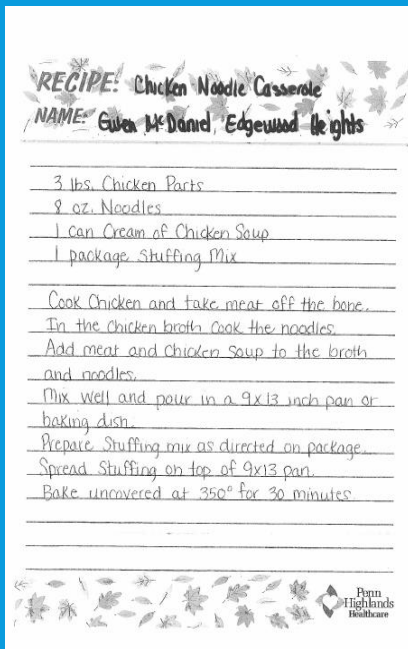 RECIPE: Chicken Noodle Casserole
NAME: Gwen McDaniel, Edgewood Heights
3 lbs. Chicken Parts
8 oz. Noodles
1 can Cream of Chicken Soup
1 package Stuffing Mix
Cook Chicken and take meat off the bone.
In the chicken broth cook the noodles.
Add meat and chicken soup to the broth
and noodles.
Mix well and pour in a 9x13 inch pan or
baking dish.
Prepare Stuffing mix as directed on package.
Spread Stuffing on top of 9x13 pan.
Bake uncovered at 350° for 30 minutes
Penn
Highlands
Healthcare